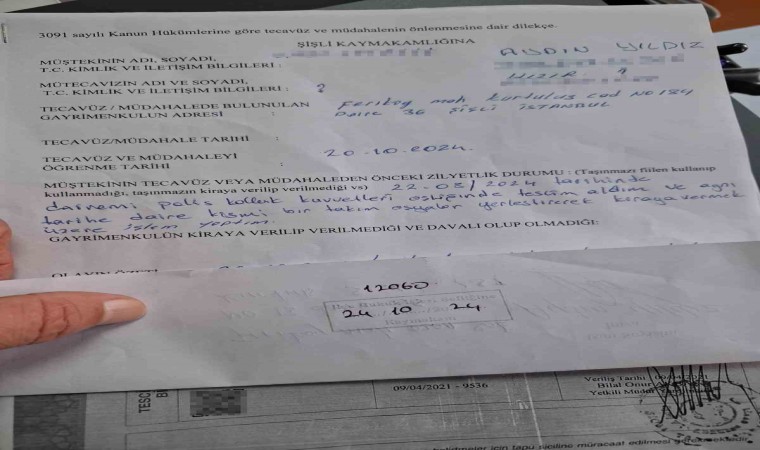 3091 sayılı Kanun Hükümlerine göre tecavüz ve müdahalenin önlenmesine dair dilekçe.
ŞİŞLİ KAYMAKAMLIĞINA
MÜŞTEKİNİN ADI, SOYADI, AYDIN YILDIZ
T.C. KİMLİK VE İLETİŞİM BİLGİLERİ :
MÜTECAVİZİN ADI VE SOYADI, HIZIR ?
T.C. KİMLİK VE İLETİŞİM BİLGİLERİ : ?
TECAVÜZ / MÜDAHALEDE BULUNULAN Feriköy mah. kurtuluş cad NO 124
GAYRİMENKULUN ADRESİ : Daire 36 ŞİŞLİ İSTANBUL
TECAVÜZ/MÜDAHALE TARİHİ :
TECAVÜZ VE MÜDAHALEYİ 20.10.2024.
ÖĞRENME TARİHİ :
MÜŞTEKİNİN TECAVÜZ VEYA MÜDAHALEDEN ÖNCEKİ ZİLYETLİK DURUMU : (Taşınmazı fiilen kullanıp
kullanmadığı, taşınmazın kiraya verilip verilmediği vs) 22-08/2024 tarihinde
dairemi polis kolluk kuvvetleri eşliğinde teslim aldım ve aynı
tarihe daire bir takım eşyalar yerleştirerek kiraya vermek
üzere işlem yaptım.
GAYRİMENKULÜN KİRAYA VERİLİP VERİLMEDİĞİ VE DAVALI OLUP OLMADIĞI:
12060
24 10 24
09/04/2021 - 9536
Veriliş Tarihi
Bilal Onur
Yetkili Müdür
için tapu siciline müracaat edilmesi gerekmektedir